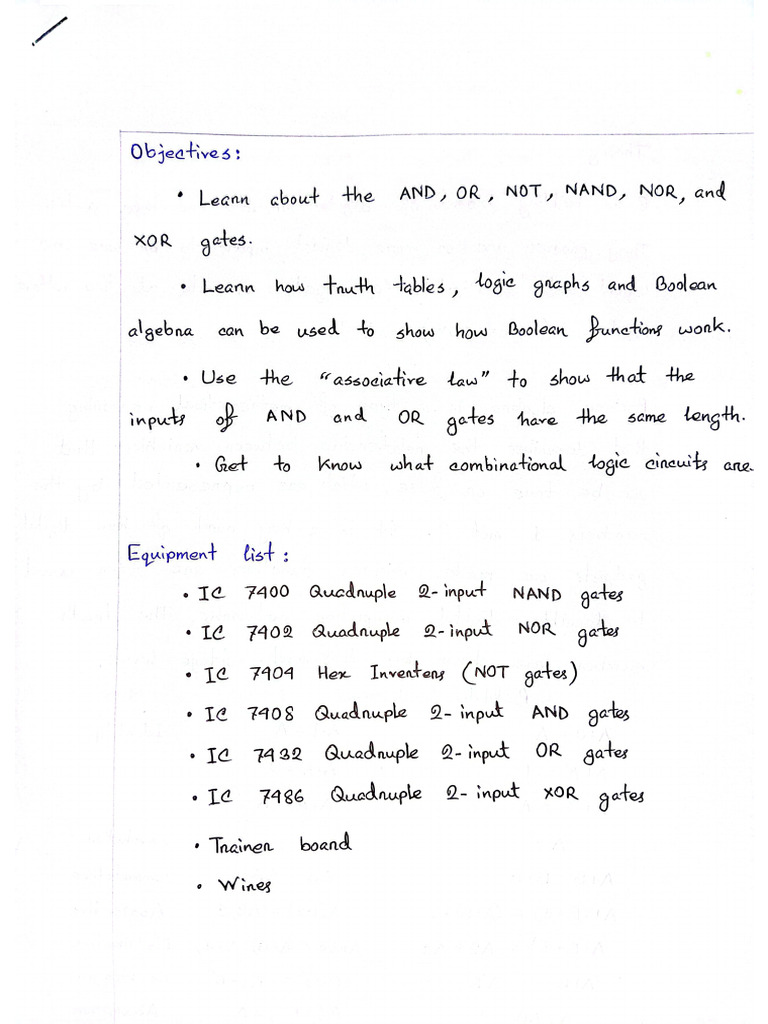 Objectives:
• Learn about the AND, OR, NOT, NAND, NOR, and
XOR gates.
• Learn how truth tables, logic graphs and Boolean
algebra can be used to show how Boolean functions work.
• Use the "associative law" to show that the
inputs of AND and OR gates have the same length.
• Get to know what combinational logic circuits are.
Equipment list:
• IC 7400 Quadruple 2-input NAND gates
• IC 7402 Quadruple 2-input NOR gates
• IC 7404 Hex Inverters (NOT gates)
• IC 7408 Quadruple 2-input AND gates
• IC 7432 Quadruple 2-input OR gates
• IC 7486 Quadruple 2-input XOR gates
• Trainer board
• Wires